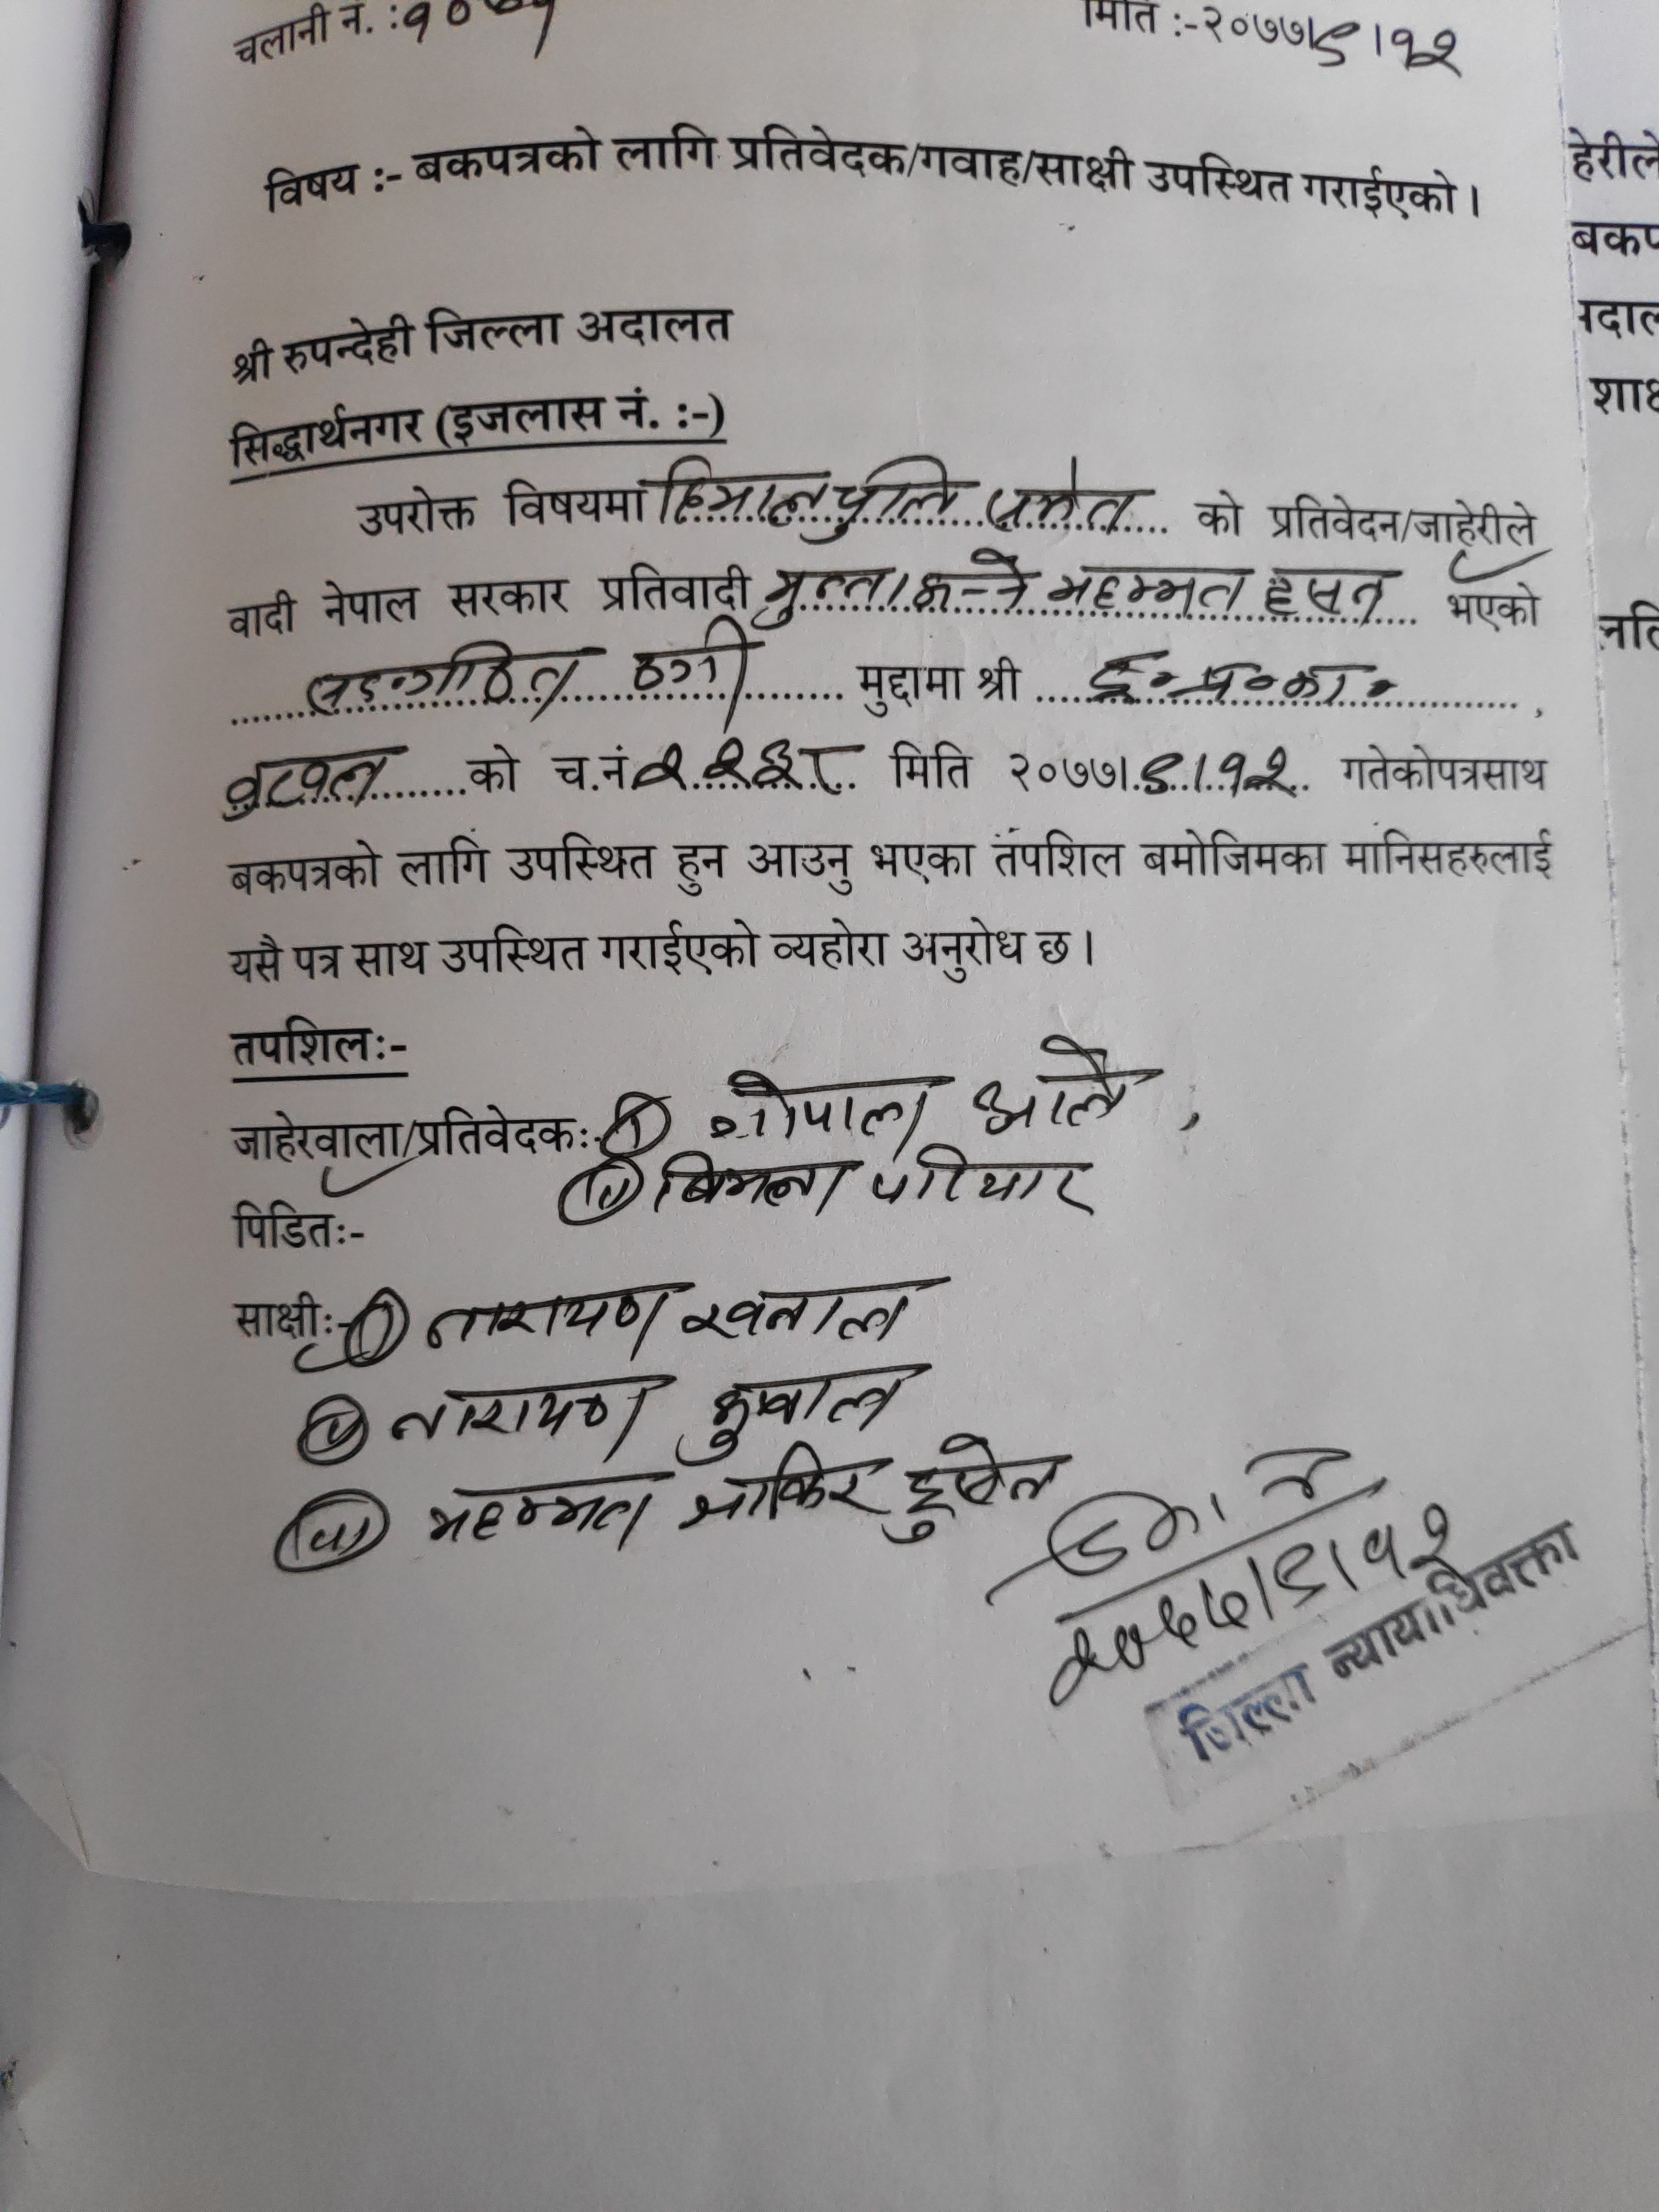 चलानी नं. :
मिति :-२०७७।९।१२
विषय :- बकपत्रको लागि प्रतिवेदक/गवाह/साक्षी उपस्थित गराईएको ।
श्री रुपन्देही जिल्ला अदालत
सिद्धार्थनगर (इजलास नं. :-)
उपरोक्त विषयमा हिमालचुलि समेत को प्रतिवेदन/जाहेरीले
वादी नेपाल सरकार प्रतिवादी महम्मत हसन भएको
सङ्गठित ठगी मुद्दामा श्री ई.प्र.का. ,
बुटवल को च.नं २२६८ मिति २०७७।९।१२ गतेकोपत्रसाथ
बकपत्रको लागि उपस्थित हुन आउनु भएका तपशिल बमोजिमका मानिसहरुलाई
यसै पत्र साथ उपस्थित गराईएको व्यहोरा अनुरोध छ ।
तपशिलः-
जाहेरवाला/प्रतिवेदकः- (i) गोपाल आले ,
(ii) बिमला परियार
पिडितः-
साक्षीः- (i) नारायण खनाल
(ii) नारायण
(iii) महम्मत हुसेन
२०७७।९।१२
जिल्ला न्यायाधिवक्ता
हेरीले